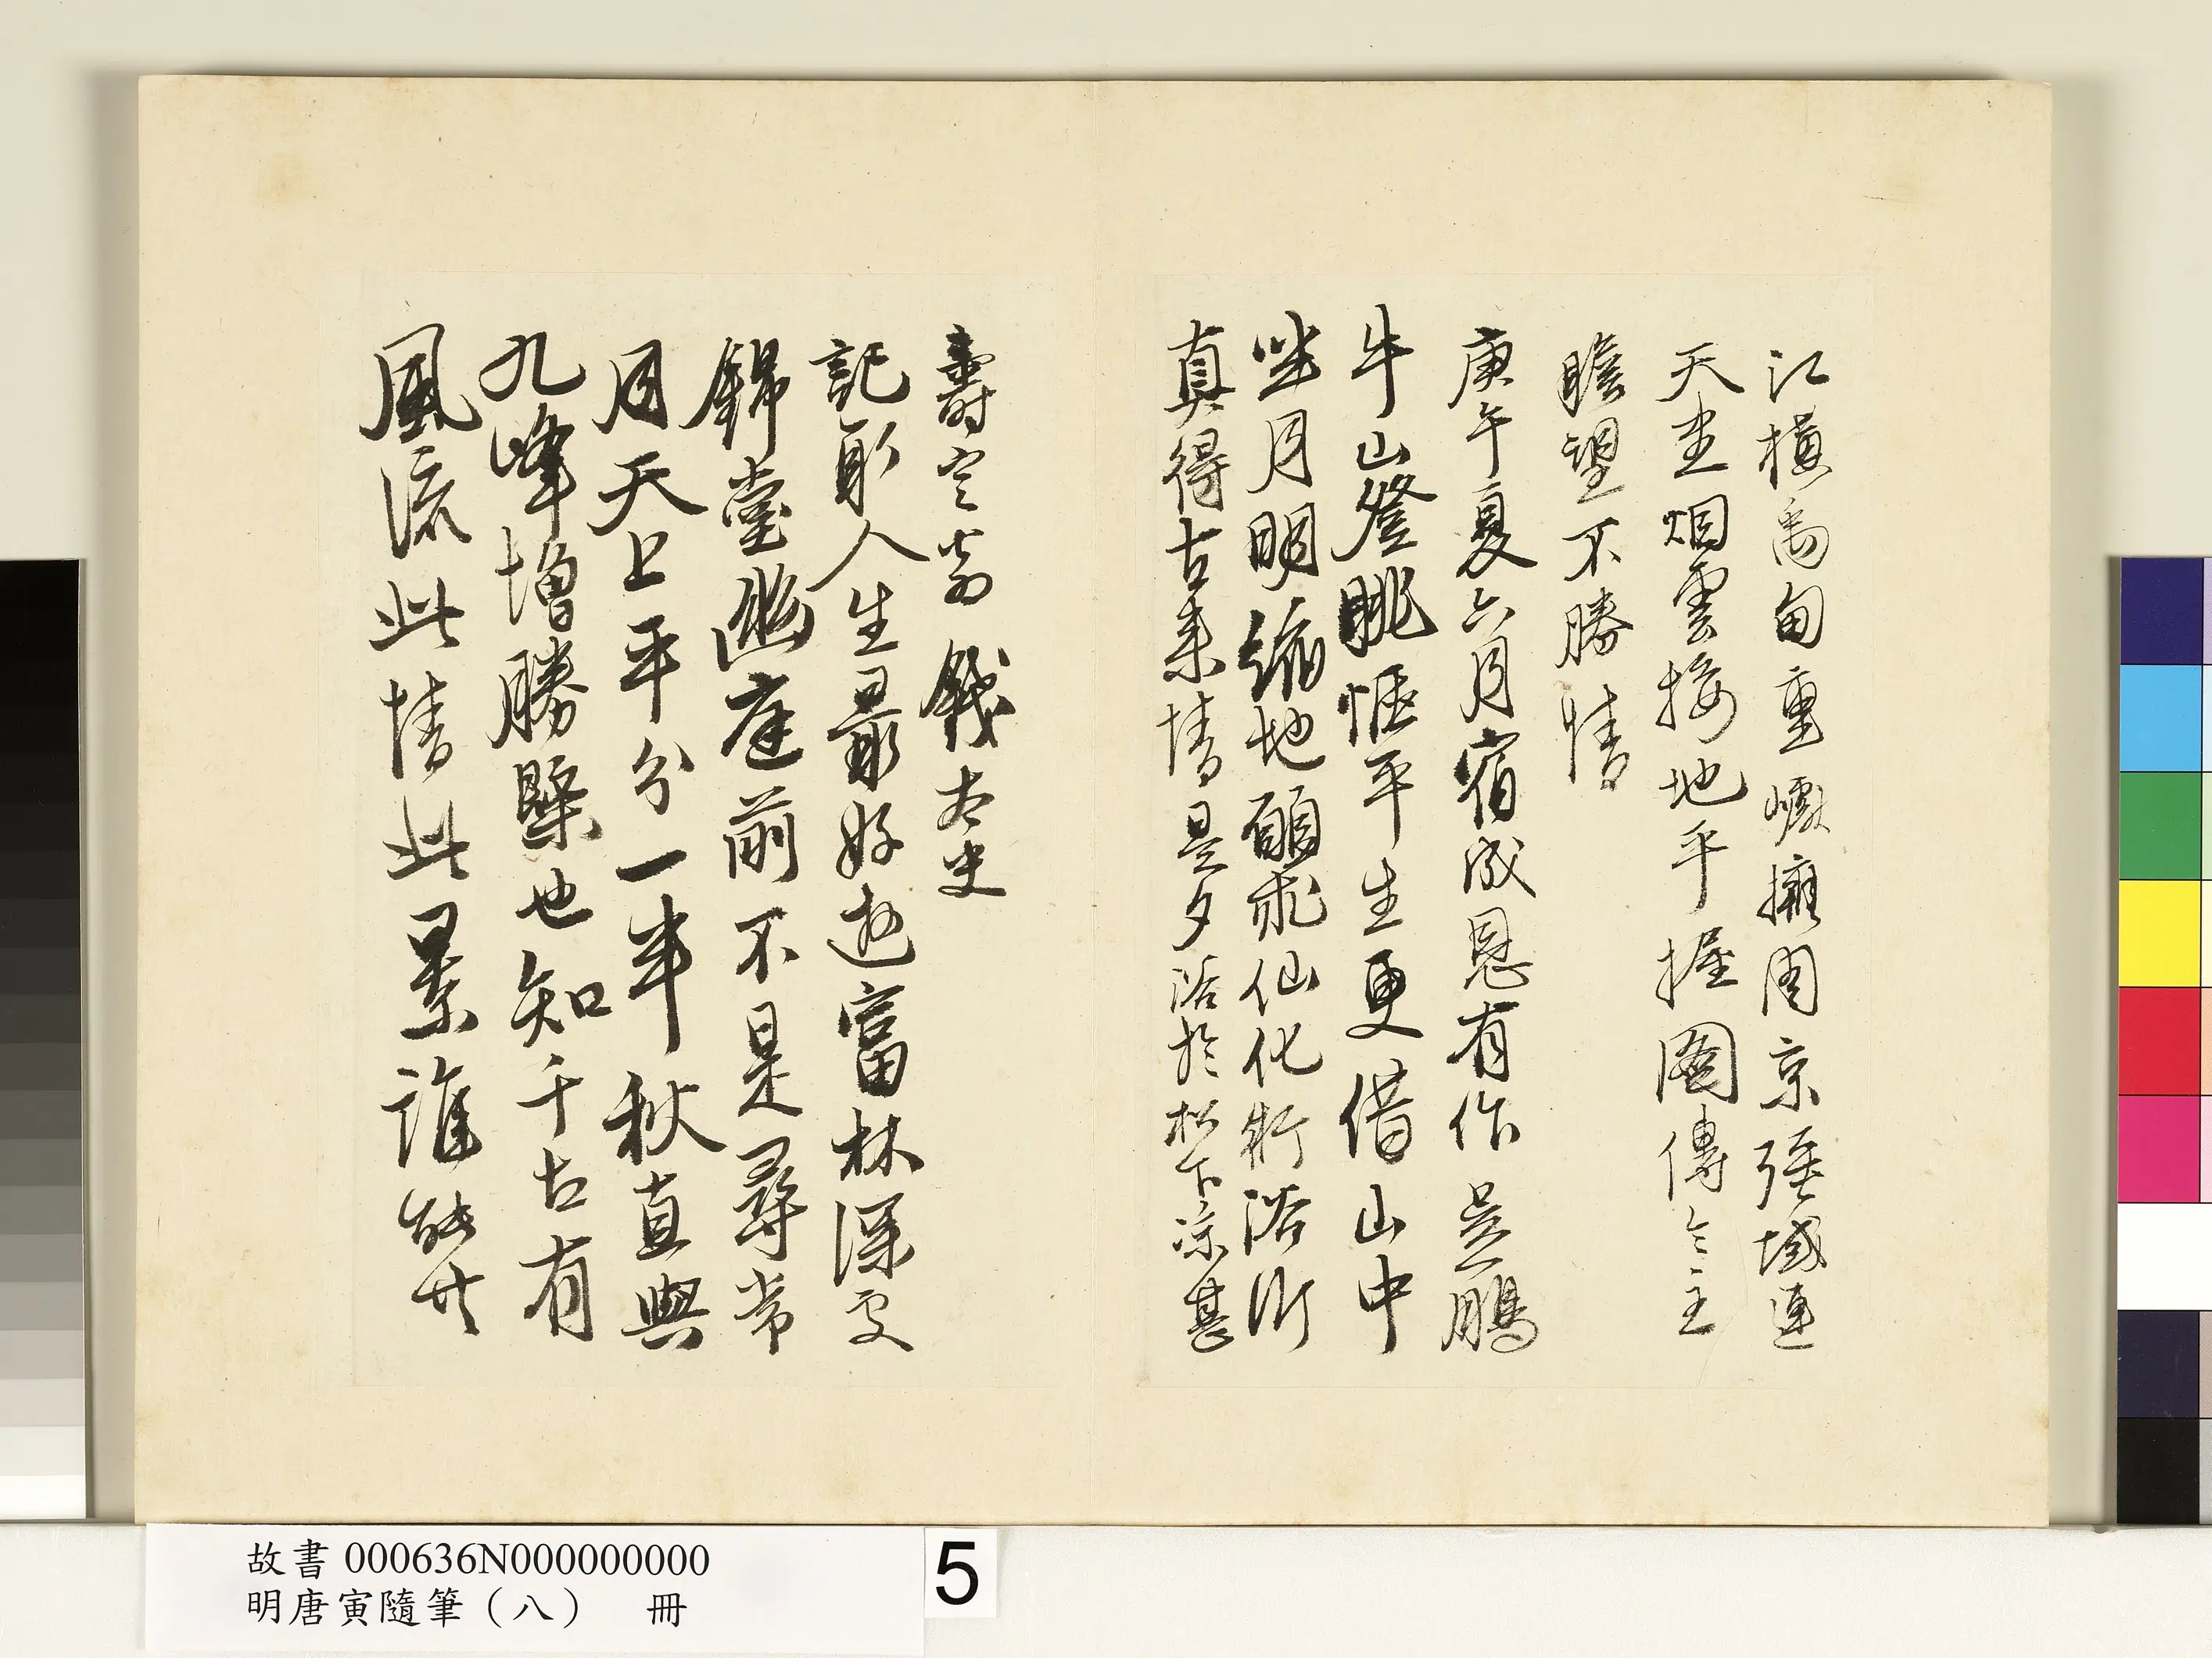 江橫禹甸重巘擁周京疆域連
天堂烟雲接地平握圖傳令主
瞻望不勝情
庚午夏六月宿成恩有作 吳鵬
牛山登眺愜平生更借山中
坐月明縮地願乘仙化術浴沂
真得古來情是夕浴於松下凉甚
壽 錢太史
記取人生最好遊富林深更
錦堂幽庭前不是尋常
月天上平分一半秋直與
九峰增勝槩也知千古有
風流此情此景誰能共
故書 000636N000000000
明唐寅隨筆（八） 冊
5